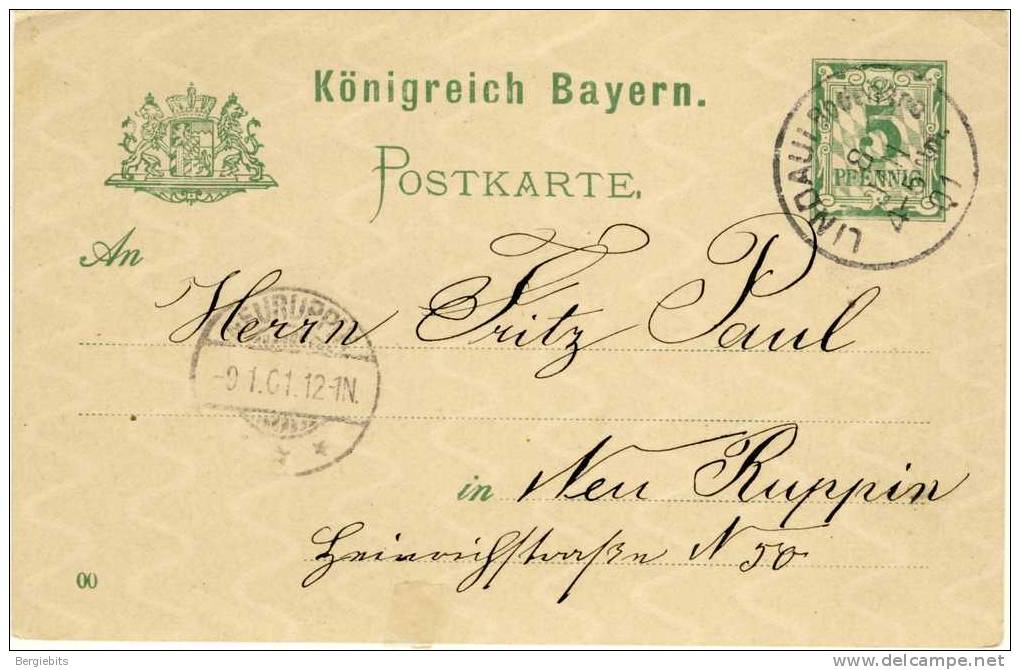 Königreich Bayern.
POSTKARTE.
5
PFENNIG
LINDAU
8
4-5
01
An
Herrn Fritz Paul
NEURUPPIN
-9.1.01.12-1N.
in Neu Ruppin
Heinrichstraße N 50
00
Bergiebits
www.delcampe.net